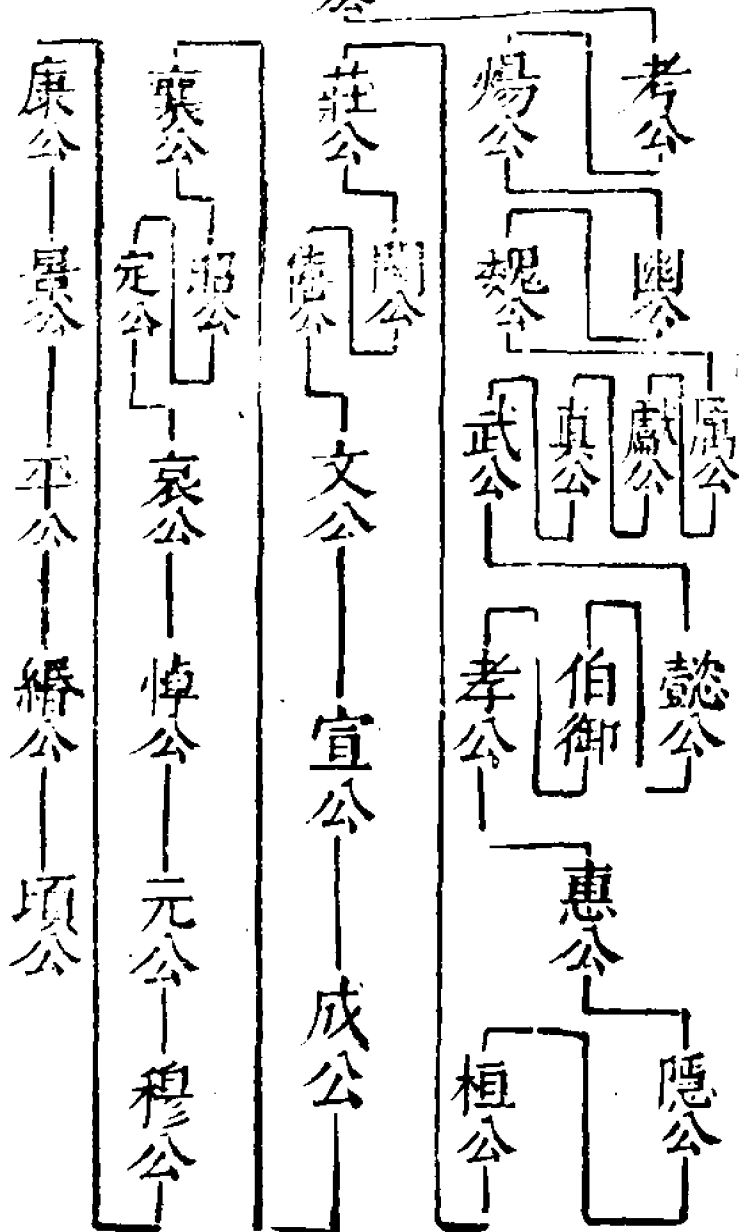 考公
煬公
幽公
魏公
厲公
獻公
真公
武公
懿公
伯御
孝公
惠公
隱公
桓公
莊公
閔公
僖公
文公
宣公
成公
襄公
昭公
定公
哀公
悼公
元公
穆公
康公
景公
平公
緡公
頃公